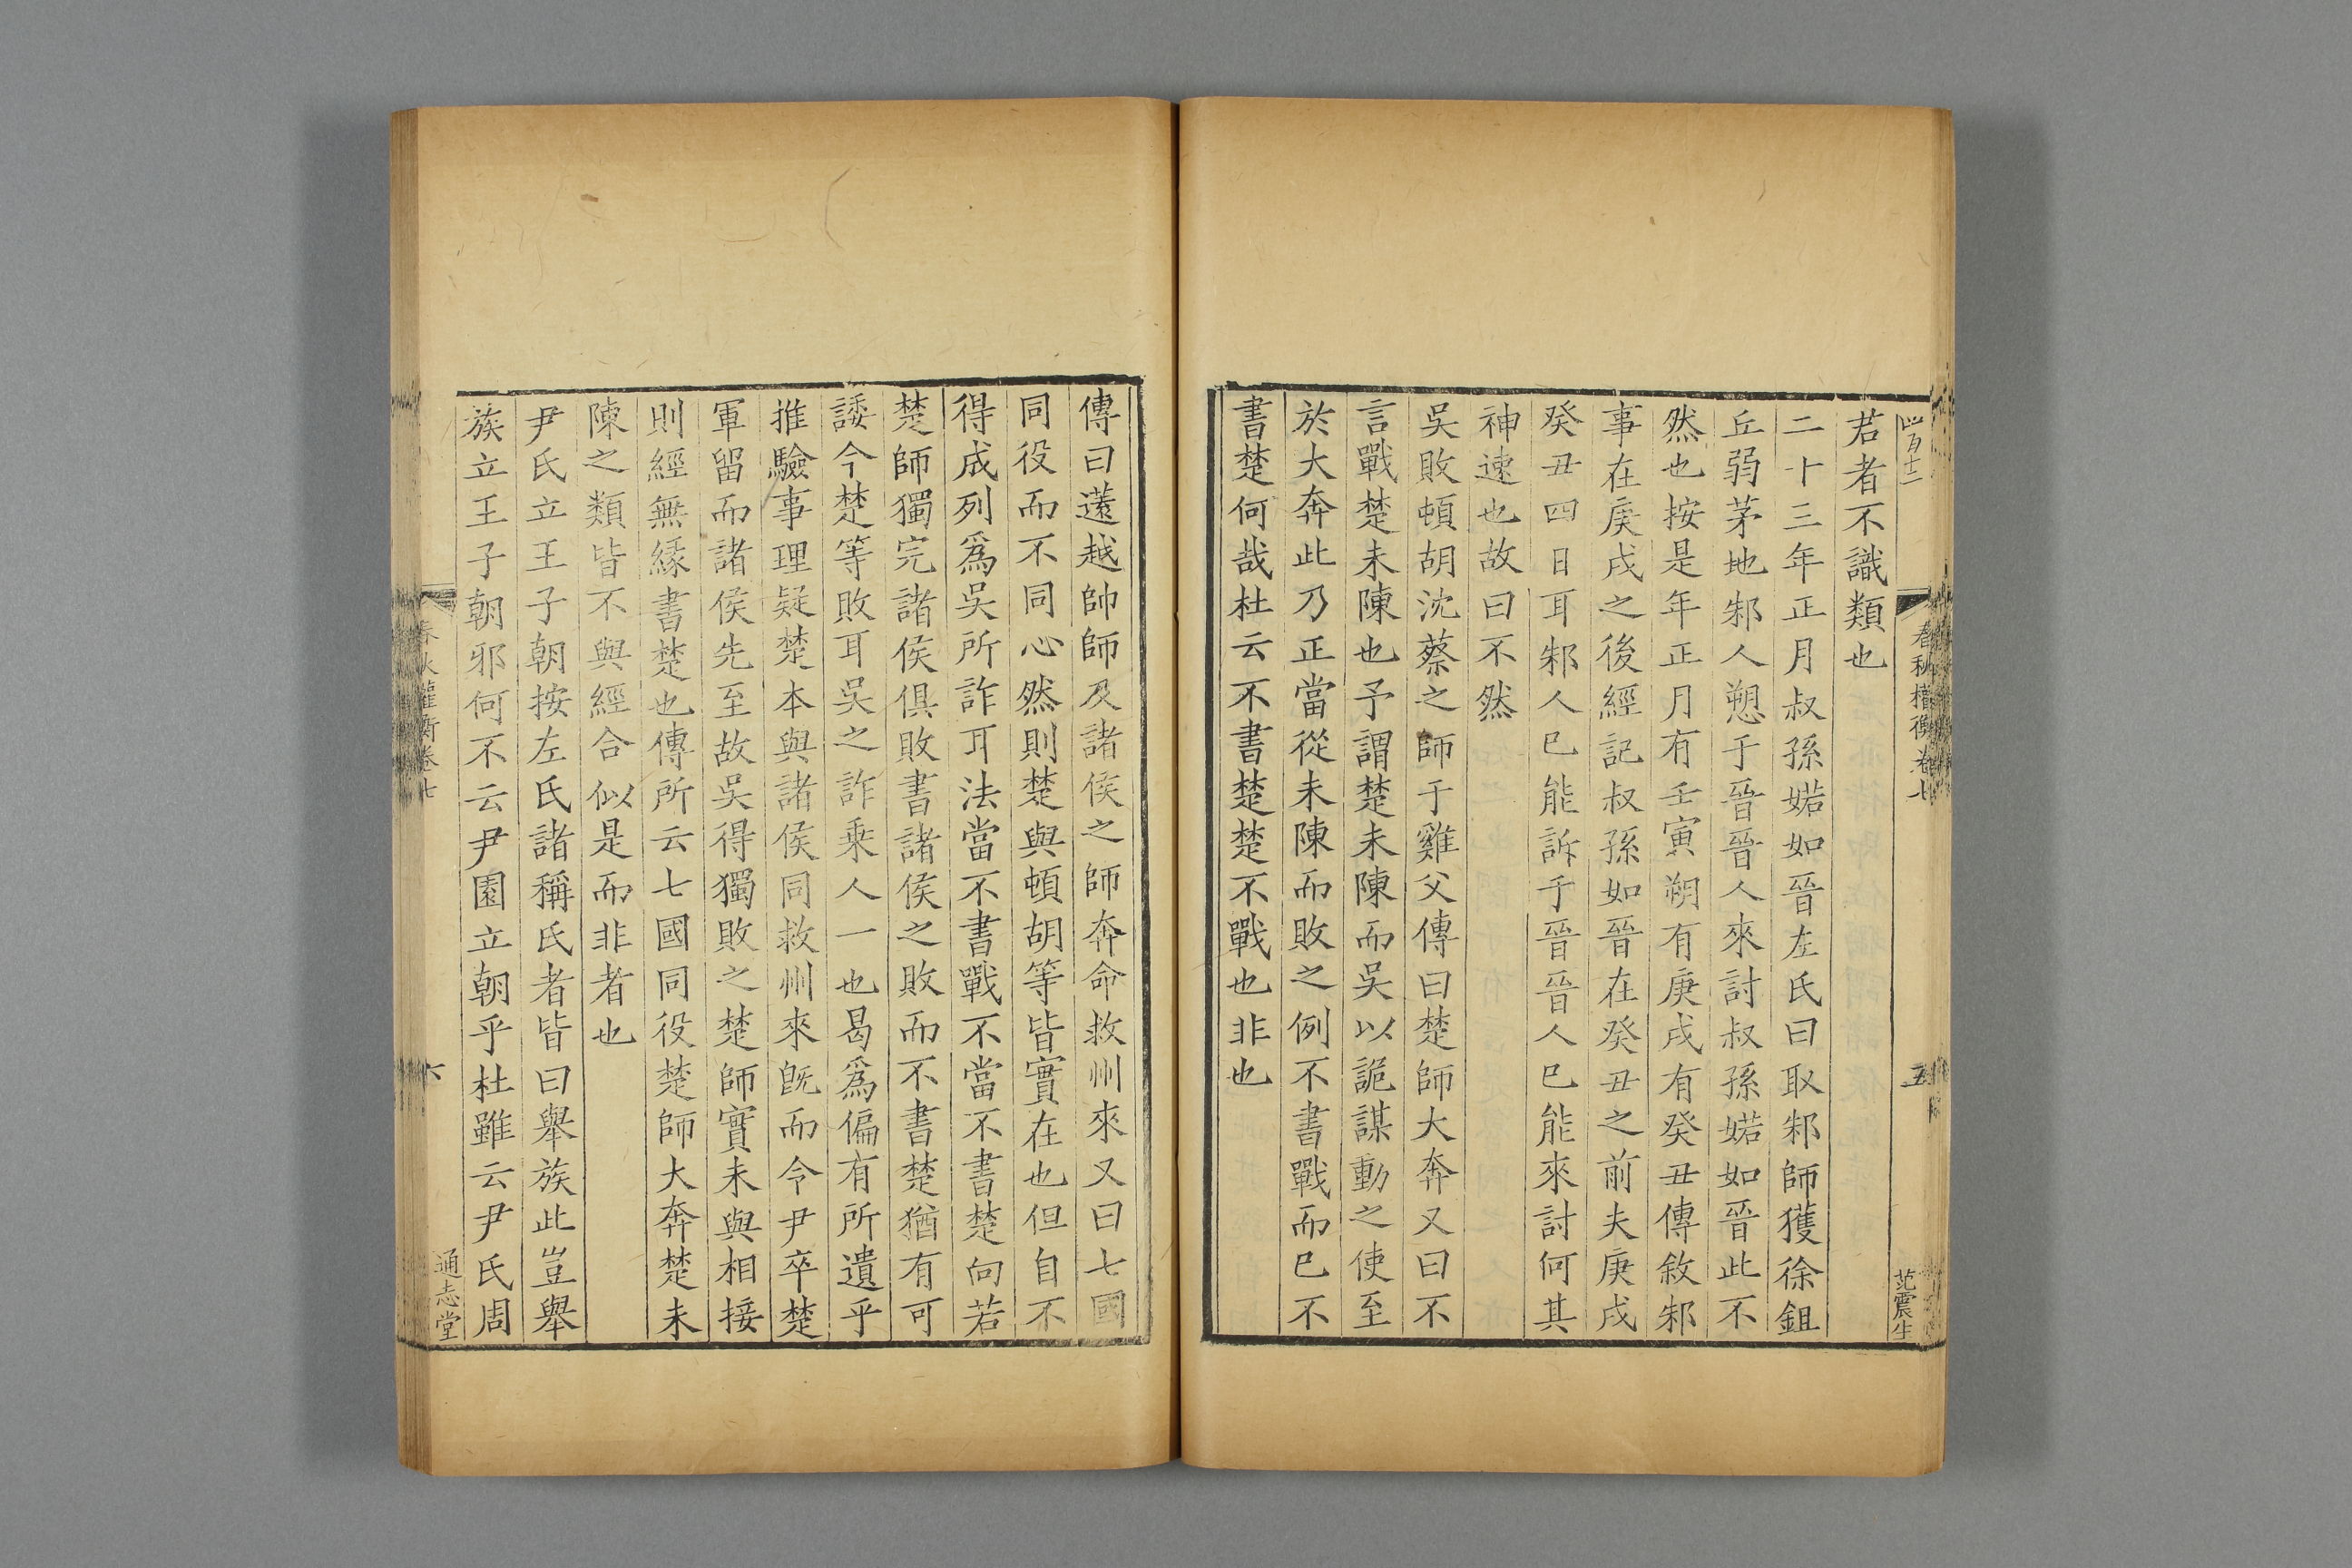 四百十二
春秋權衡卷七
五
范震生
君者不識類也
二十三年正月叔孫婼如晉左氏曰取邾師獲徐鉏
丘弱茅地邾人愬于晉晉人來討叔孫婼如晉此不
然也按是年正月有壬寅朔有庚戌有癸丑傳敘邾
事在庚戌之後經記叔孫如晉在癸丑之前夫庚戌
癸丑四日耳邾人已能訴于晉晉人已能來討何其
神速也故曰不然
吳敗頓胡沈蔡之師于雞父傳曰楚師大奔又曰不
言戰楚未陳也予謂楚未陳而吳以詭謀動之使至
於大奔此乃正當從未陳而敗之例不書戰而已不
書楚何哉杜云不書楚楚不戰也非也
傳曰薳越帥師及諸侯之師奔命救州來又曰七國
同役而不同心然則楚與頓胡等皆實在也但自不
得成列爲吳所詐耳法當不書戰不當不書楚向若
楚師獨完諸侯俱敗書諸侯之敗而不書楚猶有可
諉今楚等敗耳吳之詐乘人一也曷爲偏有所遺乎
推驗事理疑楚本與諸侯同救州來旣而令尹卒楚
軍留而諸侯先至故吳得獨敗之楚師實未與相接
則經無緣書楚也傳所云七國同役楚師大奔楚未
陳之類皆不與經合似是而非者也
尹氏立王子朝按左氏諸稱氏者皆曰舉族此豈舉
族立王子朝邪何不云尹圉立朝乎杜雖云尹氏周
春秋權衡卷七
六
通志堂